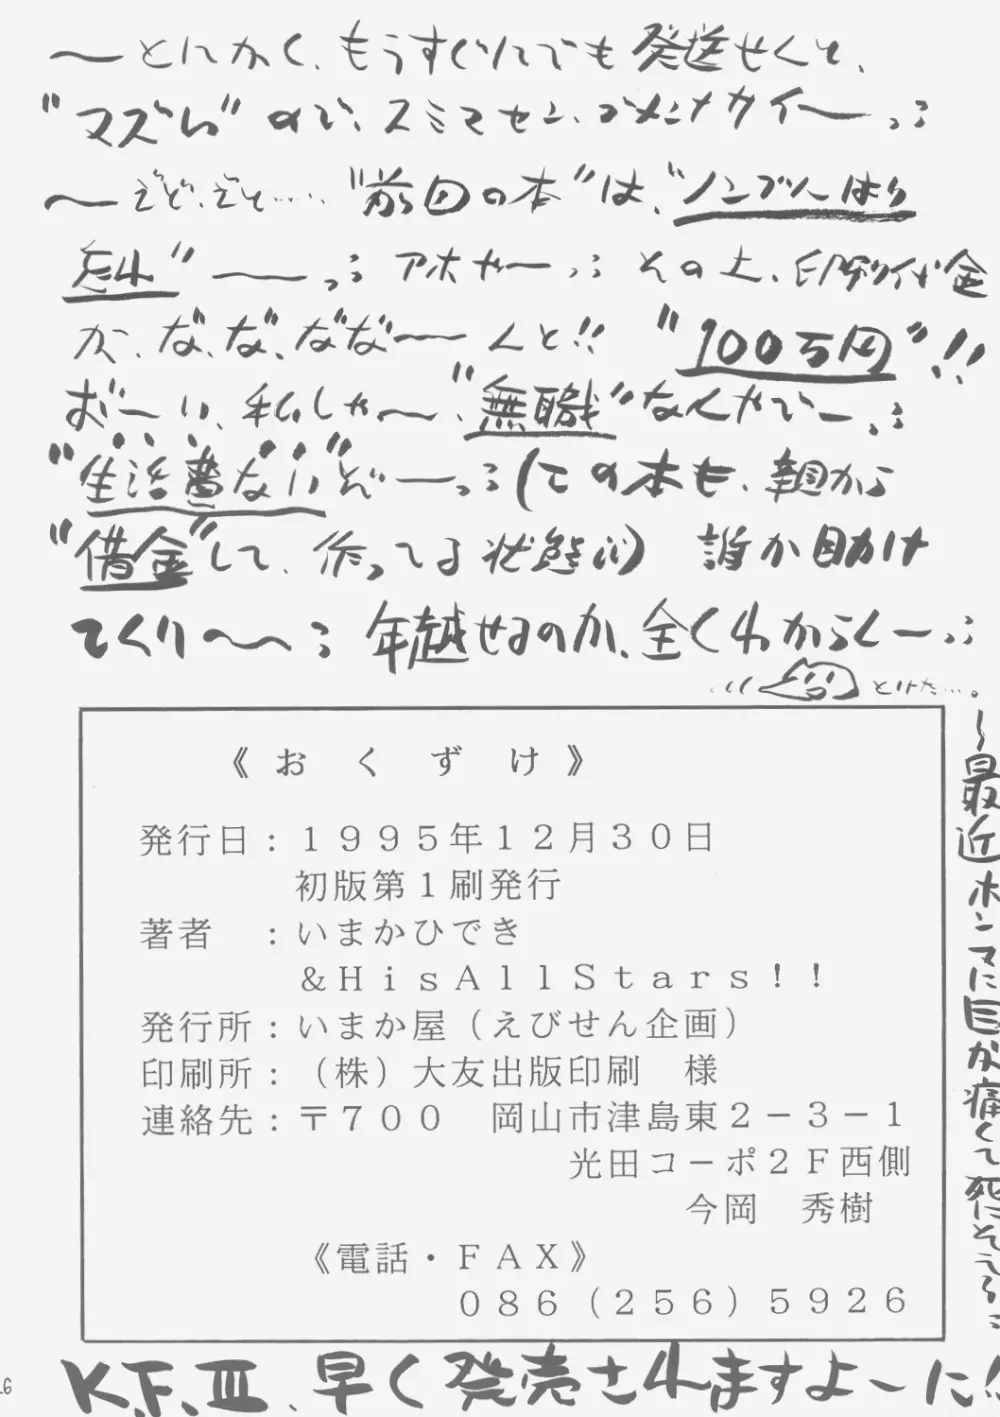 〜とにかく、もうすぐにでも発送せんと、
“マズい”ので、スミマセン、ゴメンナサイーっ;
〜ぞぞ、ぞぞ……“前回の本”は、“ノンブルはり
忘れ”――っ; アホやーっ; その上、印刷代金
が、な、な、ななーんと!! “100万円”!!
おーい、私しゃ〜、“無職”なんやでーっ;
“生活費ない”ぞーっ;(この本も、親から
“借金”して、作ってる状態(;)) 誰か助け
てくり〜〜; 年越せるのか、全くわからんーっ;
とけた…。
《おくずけ》
発行日：１９９５年１２月３０日
初版第１刷発行
著者　：いまかひでき
＆ＨｉｓＡｌｌＳｔａｒｓ！！
発行所：いまか屋（えびせん企画）
印刷所：（株）大友出版印刷　様
連絡先：〒７００　岡山市津島東２－３－１
光田コーポ２Ｆ西側
今岡　秀樹
《電話・ＦＡＸ》
０８６（２５６）５９２６
〜最近ホンマに目が痛くて死にそう;
K.F.III、早く発売されますよーに!!
26